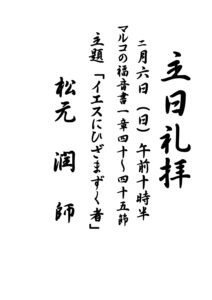 主日礼拝
二月六日（日）午前十時半
マルコの福音書一章四十～四十五節
主題「イエスにひざまずく者」
松元　潤　師